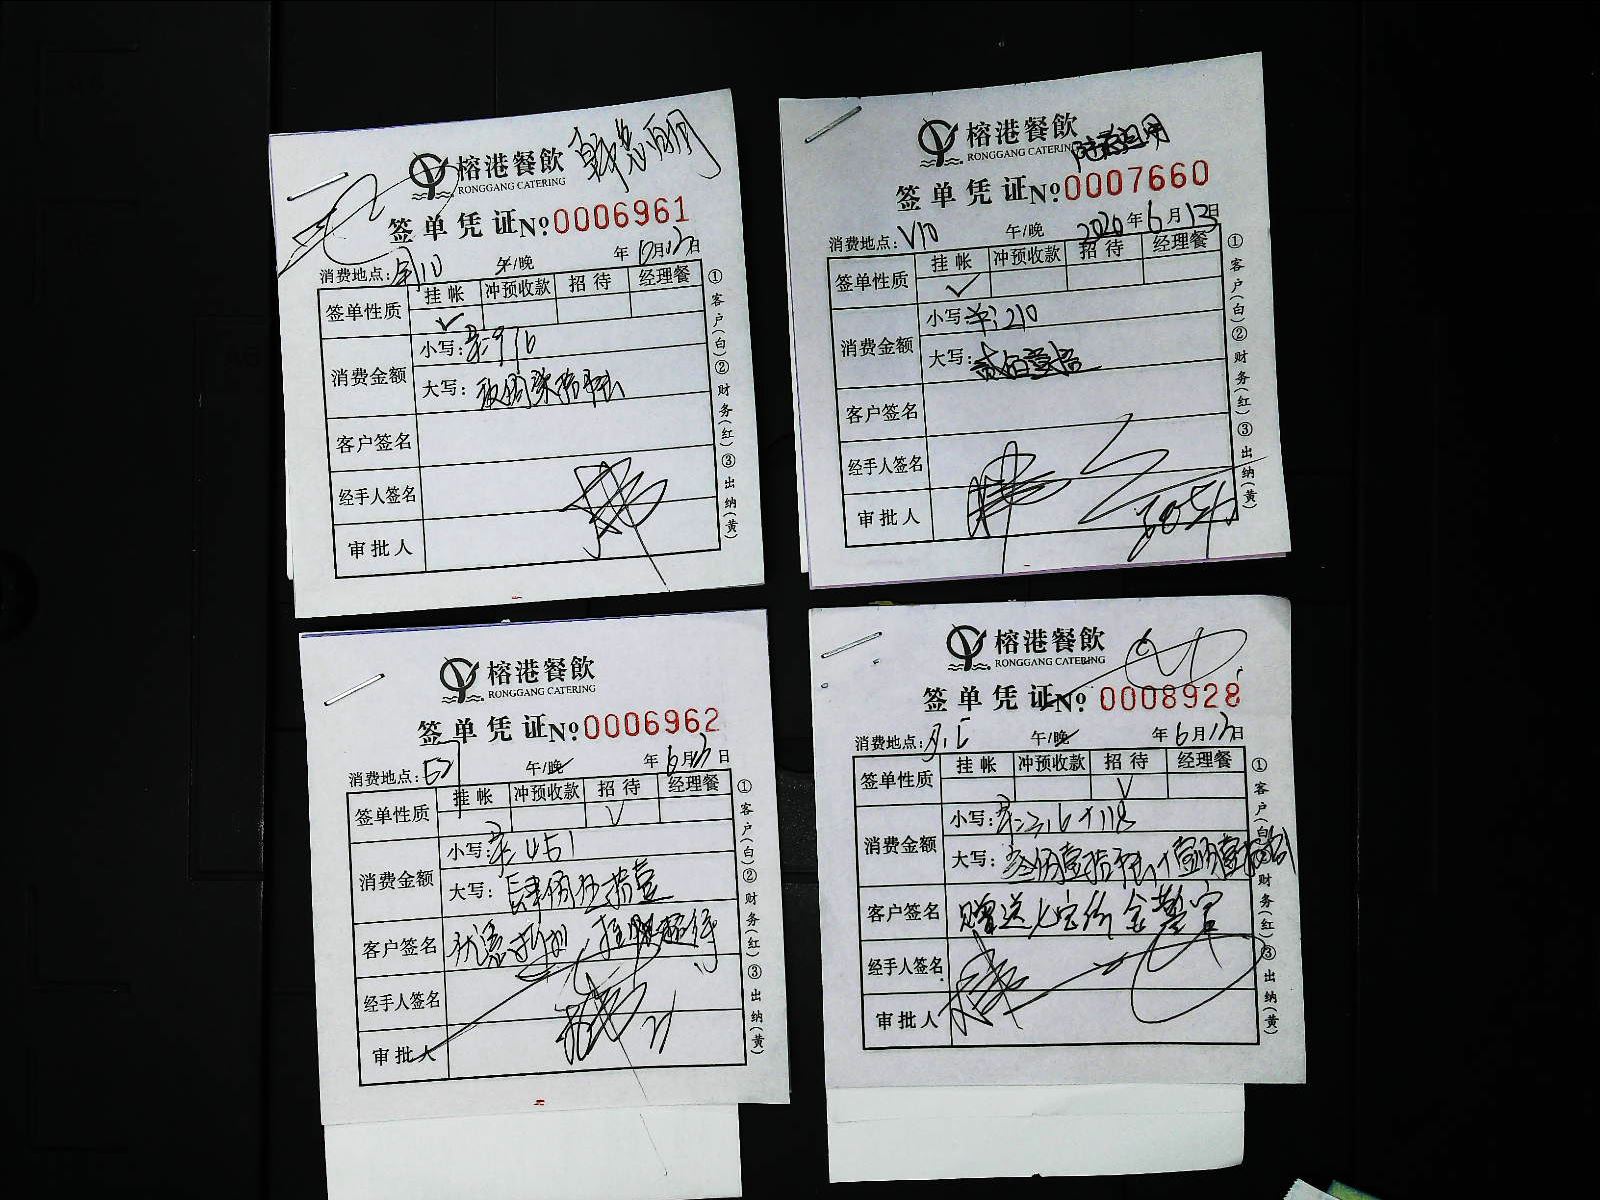 榕港餐飲
RONGGANG CATERING
签单凭证 No 0006961
消费地点: 午/晚 年 月13日
签单性质 挂帐 冲预收款 招待 经理餐
✓
消费金额 小写: 976
大写:
客户签名
经手人签名
审批人
①客户(白)②财务(红)③出纳(黄)
榕港餐飲
RONGGANG CATERING
签单凭证 No 0007660
消费地点: V10 午/晚 2020年6月13日
签单性质 挂帐 冲预收款 招待 经理餐
✓
消费金额 小写: 210
大写: 贰佰壹拾
客户签名
经手人签名
审批人
①客户(白)②财务(红)③出纳(黄)
榕港餐飲
RONGGANG CATERING
签单凭证 No 0006962
消费地点: 午/晚 年6月13日
签单性质 挂帐 冲预收款 招待 经理餐
✓
消费金额 小写: 451
大写: 肆佰伍拾壹
客户签名
经手人签名
审批人
①客户(白)②财务(红)③出纳(黄)
榕港餐飲
RONGGANG CATERING
签单凭证 No 0008928
消费地点: 午/晚 年6月13日
签单性质 挂帐 冲预收款 招待 经理餐
✓
消费金额 小写: 316+118
大写:
客户签名 赠送
经手人签名
审批人
①客户(白)②财务(红)③出纳(黄)